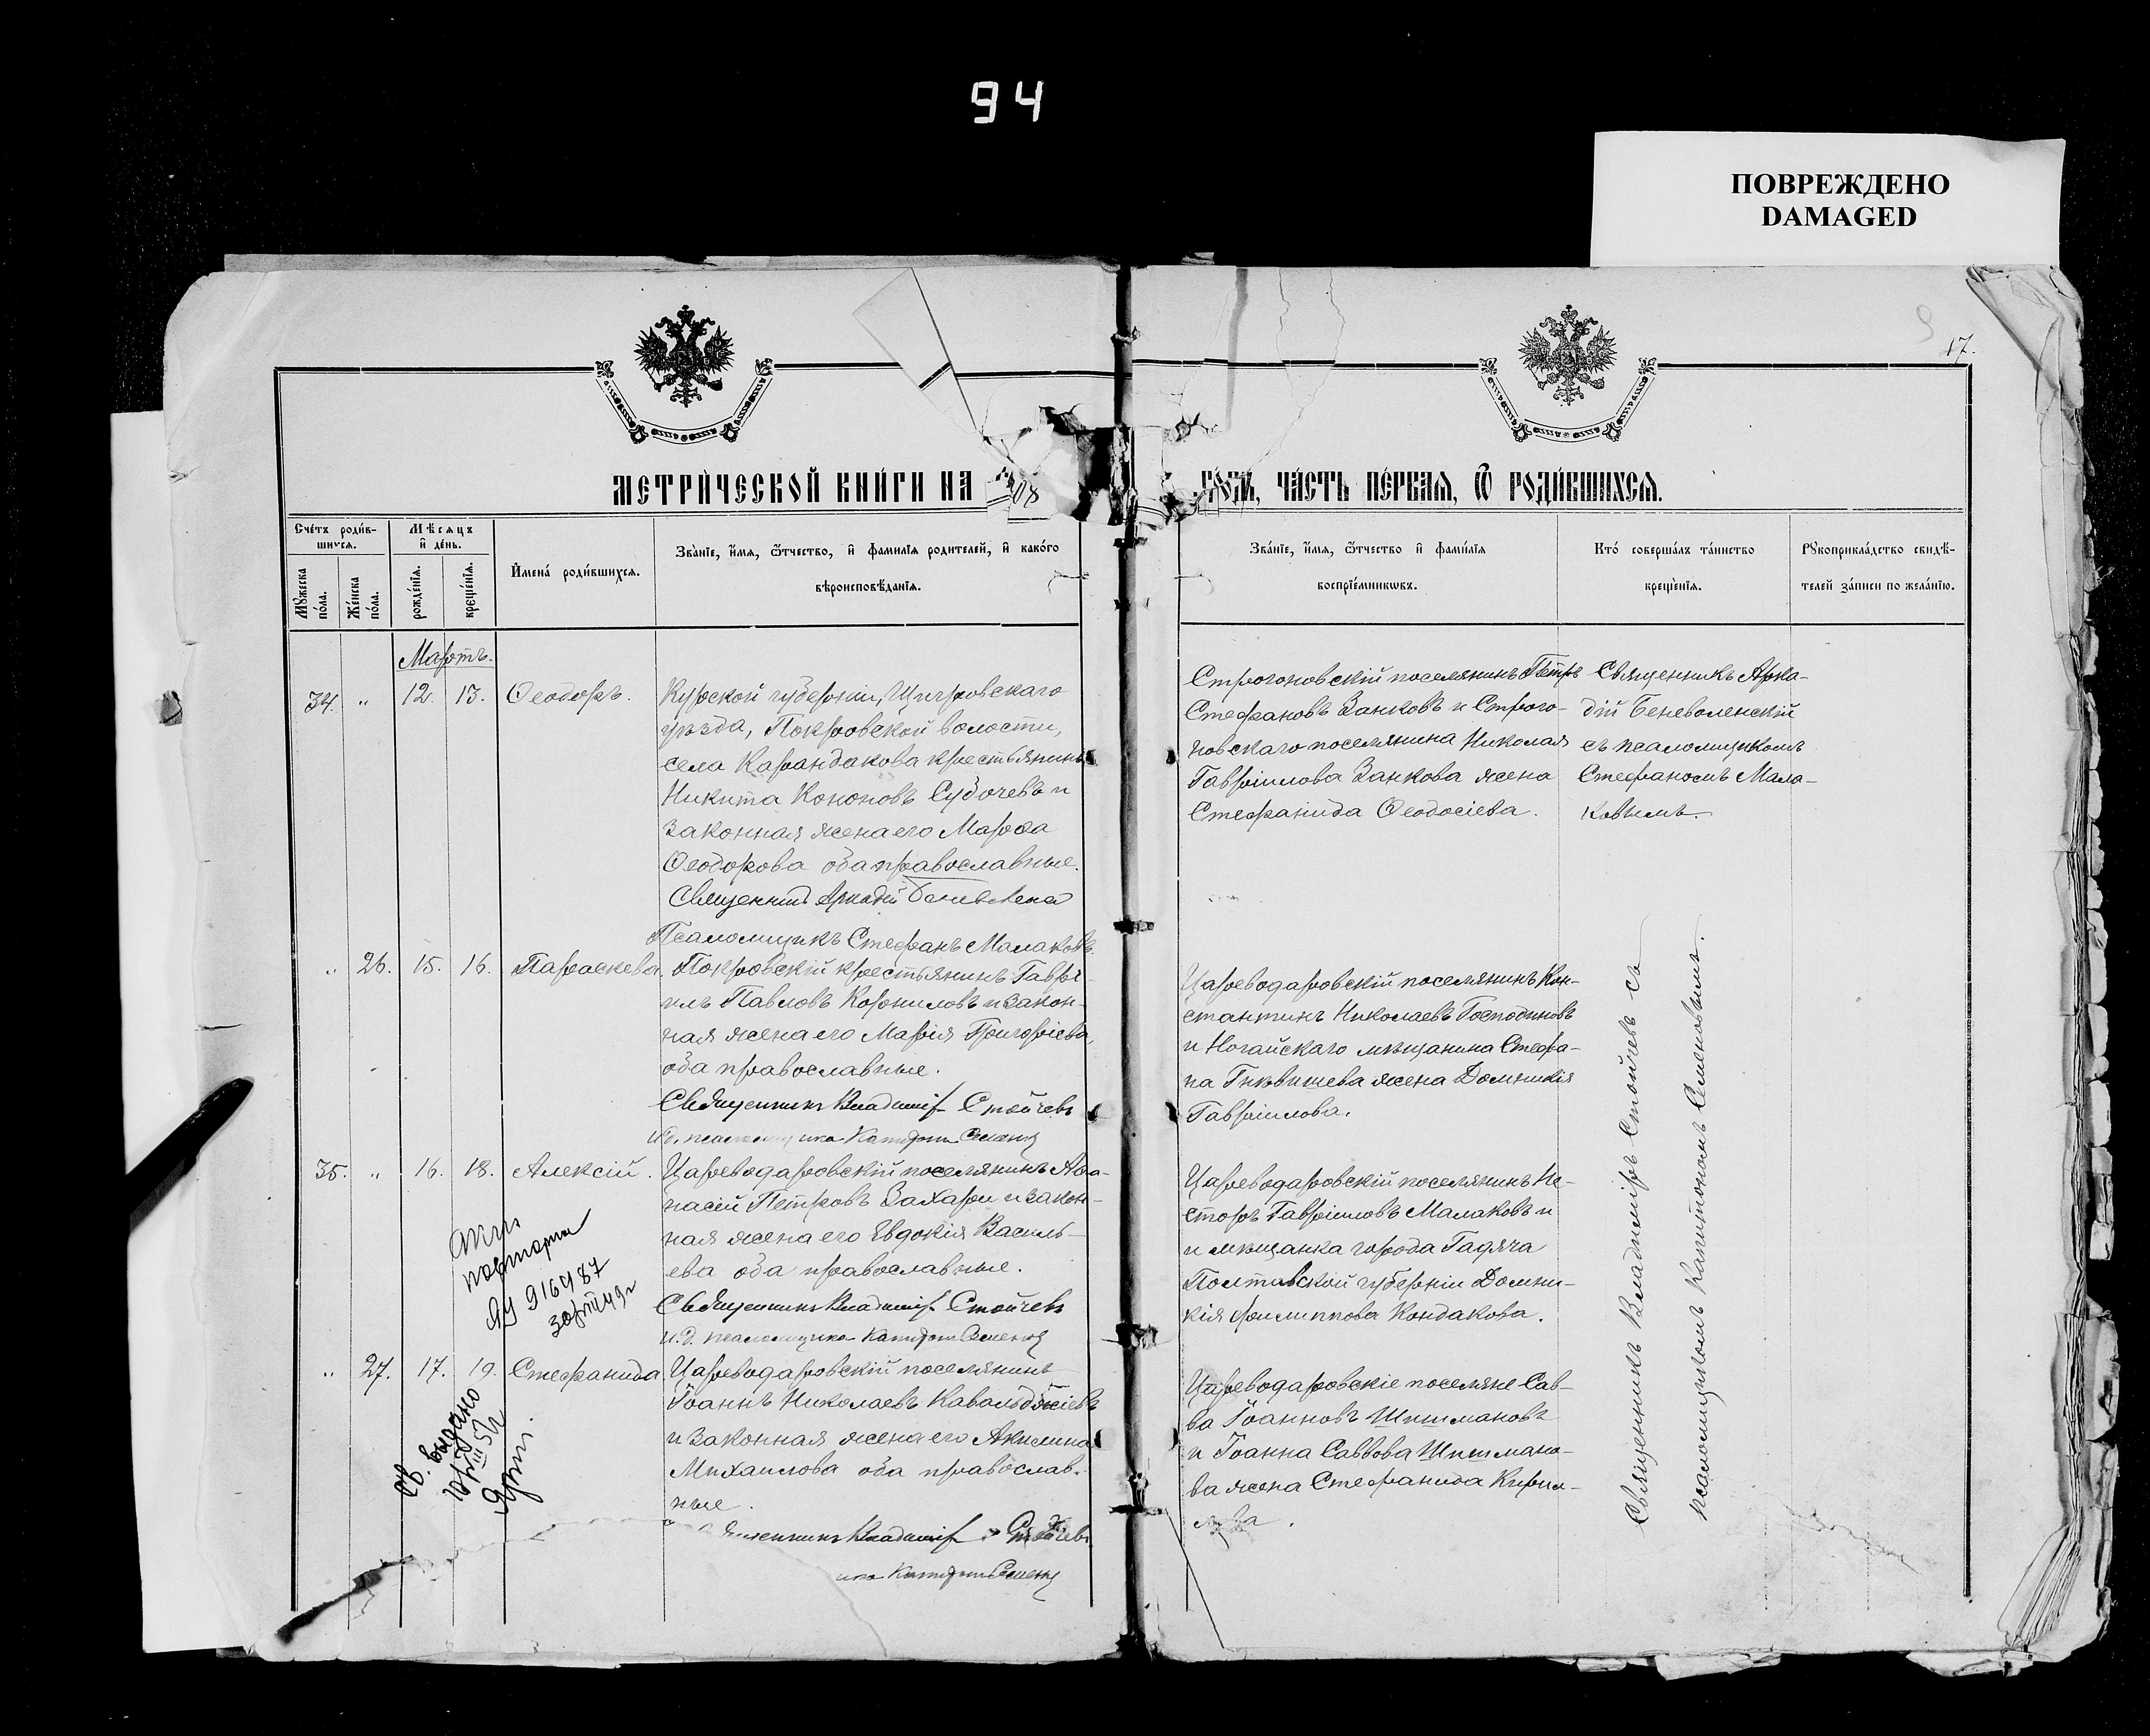 94
ПОВРЕЖДЕНО
DAMAGED
17.
МЕТРИЧЕСКОЙ КНИГИ НА
08
ГОДЪ, ЧАСТЬ ПЕРВАЯ, Ѿ РОДИВШИХСЯ.
Счетъ родив-
шихся.
Мѣсяцъ
и день.
Мужеска пола.
Женска пола.
рожденія.
крещенія.
Имена родившихся.
Званіе, имя, ѿтчество, и фамилія родителей, и какого
вѣроисповѣданія.
Званіе, имя, ѿтчество и фамилія
воспріемниковъ.
Кто совершалъ таинство
крещенія.
Рукоприкладство свидѣ-
телей записи по желанію.
Мартъ.
34. " 12. 13. Ѳеодоръ.
Курской губерніи, Щигровскаго
уѣзда, Покровской волости,
села Карандакова крестьянинъ
Никита Кононовъ Субочевъ и
законная жена его Марѳа
Ѳеодорова оба православные.
Священникъ Аркадій
Псаломщикъ Стефанъ Малаковъ.
Строгоновскій поселянинъ Петръ
Стефановъ Занковъ и Строго-
новскаго поселянина Николая
Гавріилова Занкова жена
Стефанида Ѳеодосіева.
Священникъ Арка-
дій Беневоленскій
съ псаломщикомъ
Стефаномъ Мала-
ковымъ.
" 26. 15. 16. Параскева.
Покровскій крестьянинъ Гаврі-
илъ Павловъ Корниловъ и закон-
ная жена его Марія Григоріева,
оба православные.
Священникъ Владиміръ Стойчевъ
и.д. псаломщика Капитонъ Семеновъ
Царeводаровскій поселянинъ Кон-
стантинъ Николаевъ Господиновъ
и Ногайскаго мѣщанина Стефа-
на жена Домникія
Гавріилова.
35. " 16. 18. Алексій.
Цареводаровскій поселянинъ Аѳа-
насій Петровъ Захари и закон-
ная жена его Евдокія Василь-
ева оба православные.
Священникъ Владиміръ Стойчевъ
и.д. псаломщика Капитонъ Семеновъ
Цареводаровскій поселянинъ Не-
сторъ Гавріиловъ Малаковъ и
и мѣщанка города Гадяча
Полтавской губерніи Домни-
кія Филиппова Кондакова.
916487
" 27. 17. 19. Стефанида
Цареводаровскій поселянинъ
Іоаннъ Николаевъ Кавалъджіевъ
и законная жена его Акилина
Михаилова оба православ-
ные.
Владиміръ Стойчевъ
Капитонъ Семеновъ
Цареводаровскіе поселяне Сав-
ва Іоанновъ Шишмановъ
и Іоанна Саввова Шишмано-
ва жена Стефанида Кирил-
лова.
св. выдано
Священникъ Владиміръ Стойчевъ съ
псаломщикомъ Капитономъ Семеновымъ.